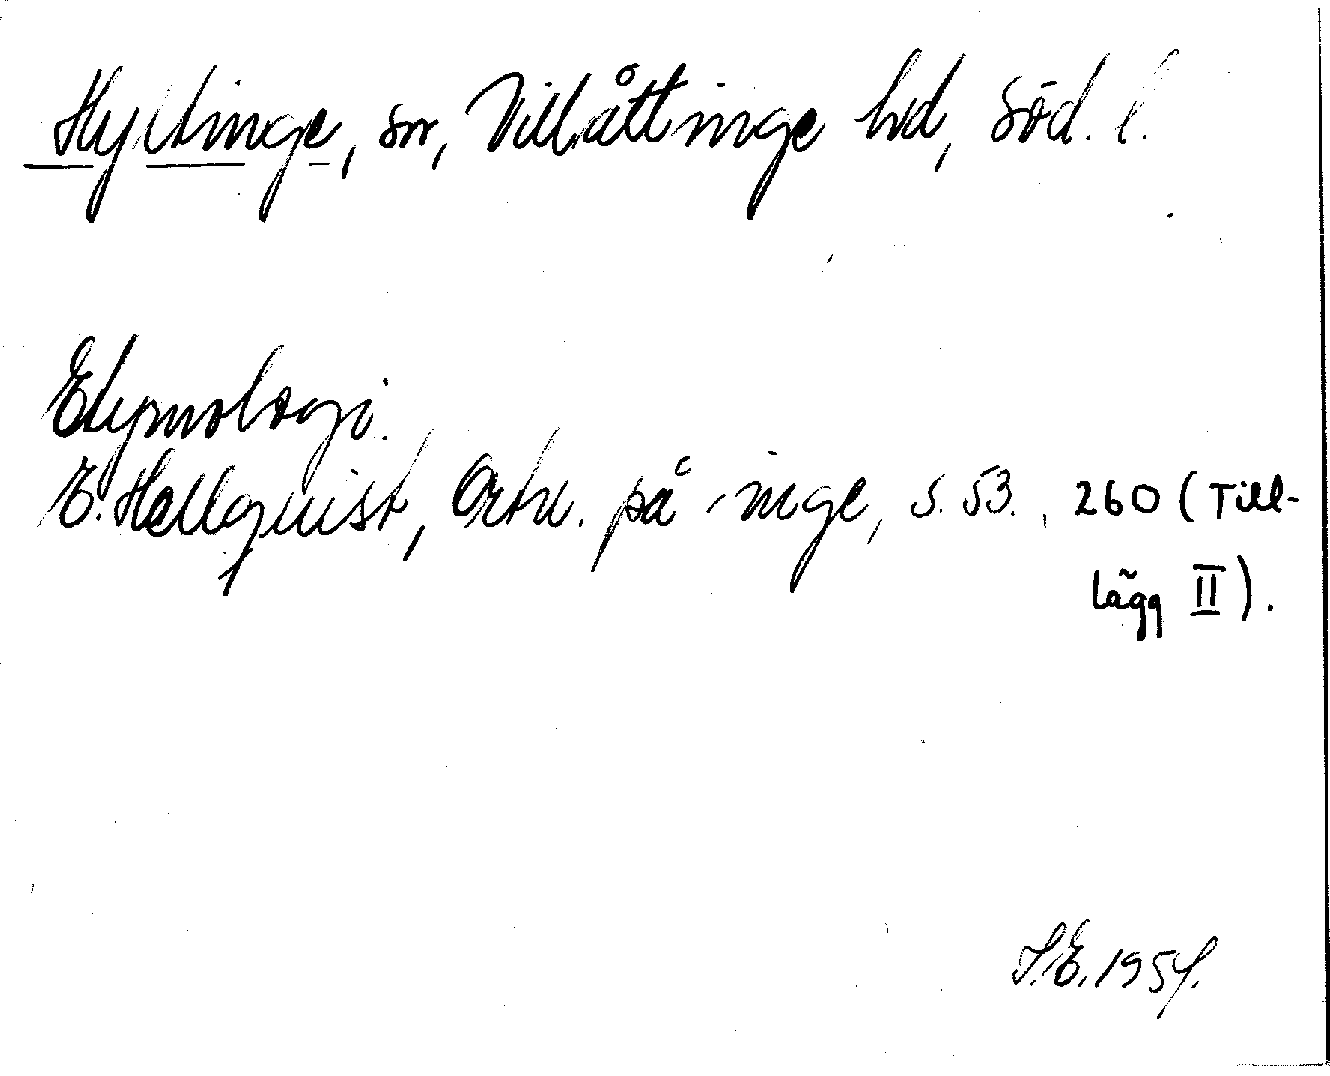 Hyltinge, sn, Villåttinge hd, Söd. l.
Etymologi.
E. Hellquist, Ortn. på -inge, s. 53., 260 (Till-
lägg II).
S.E. 1954.